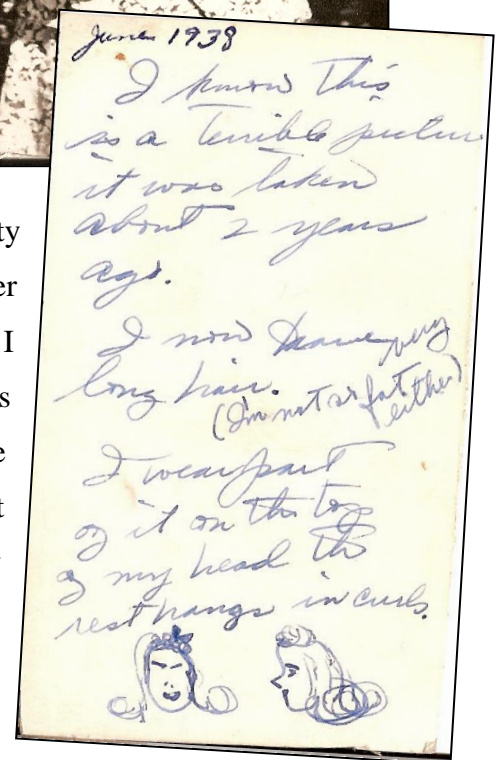 June 1938
I know this
is a terrible picture
it was taken
about 2 years
ago.
I now have very
long hair.
(I'm not so fat
either)
I wear part
of it on the top
of my head the
rest hangs in curls.
ty
er
I
s
e
t